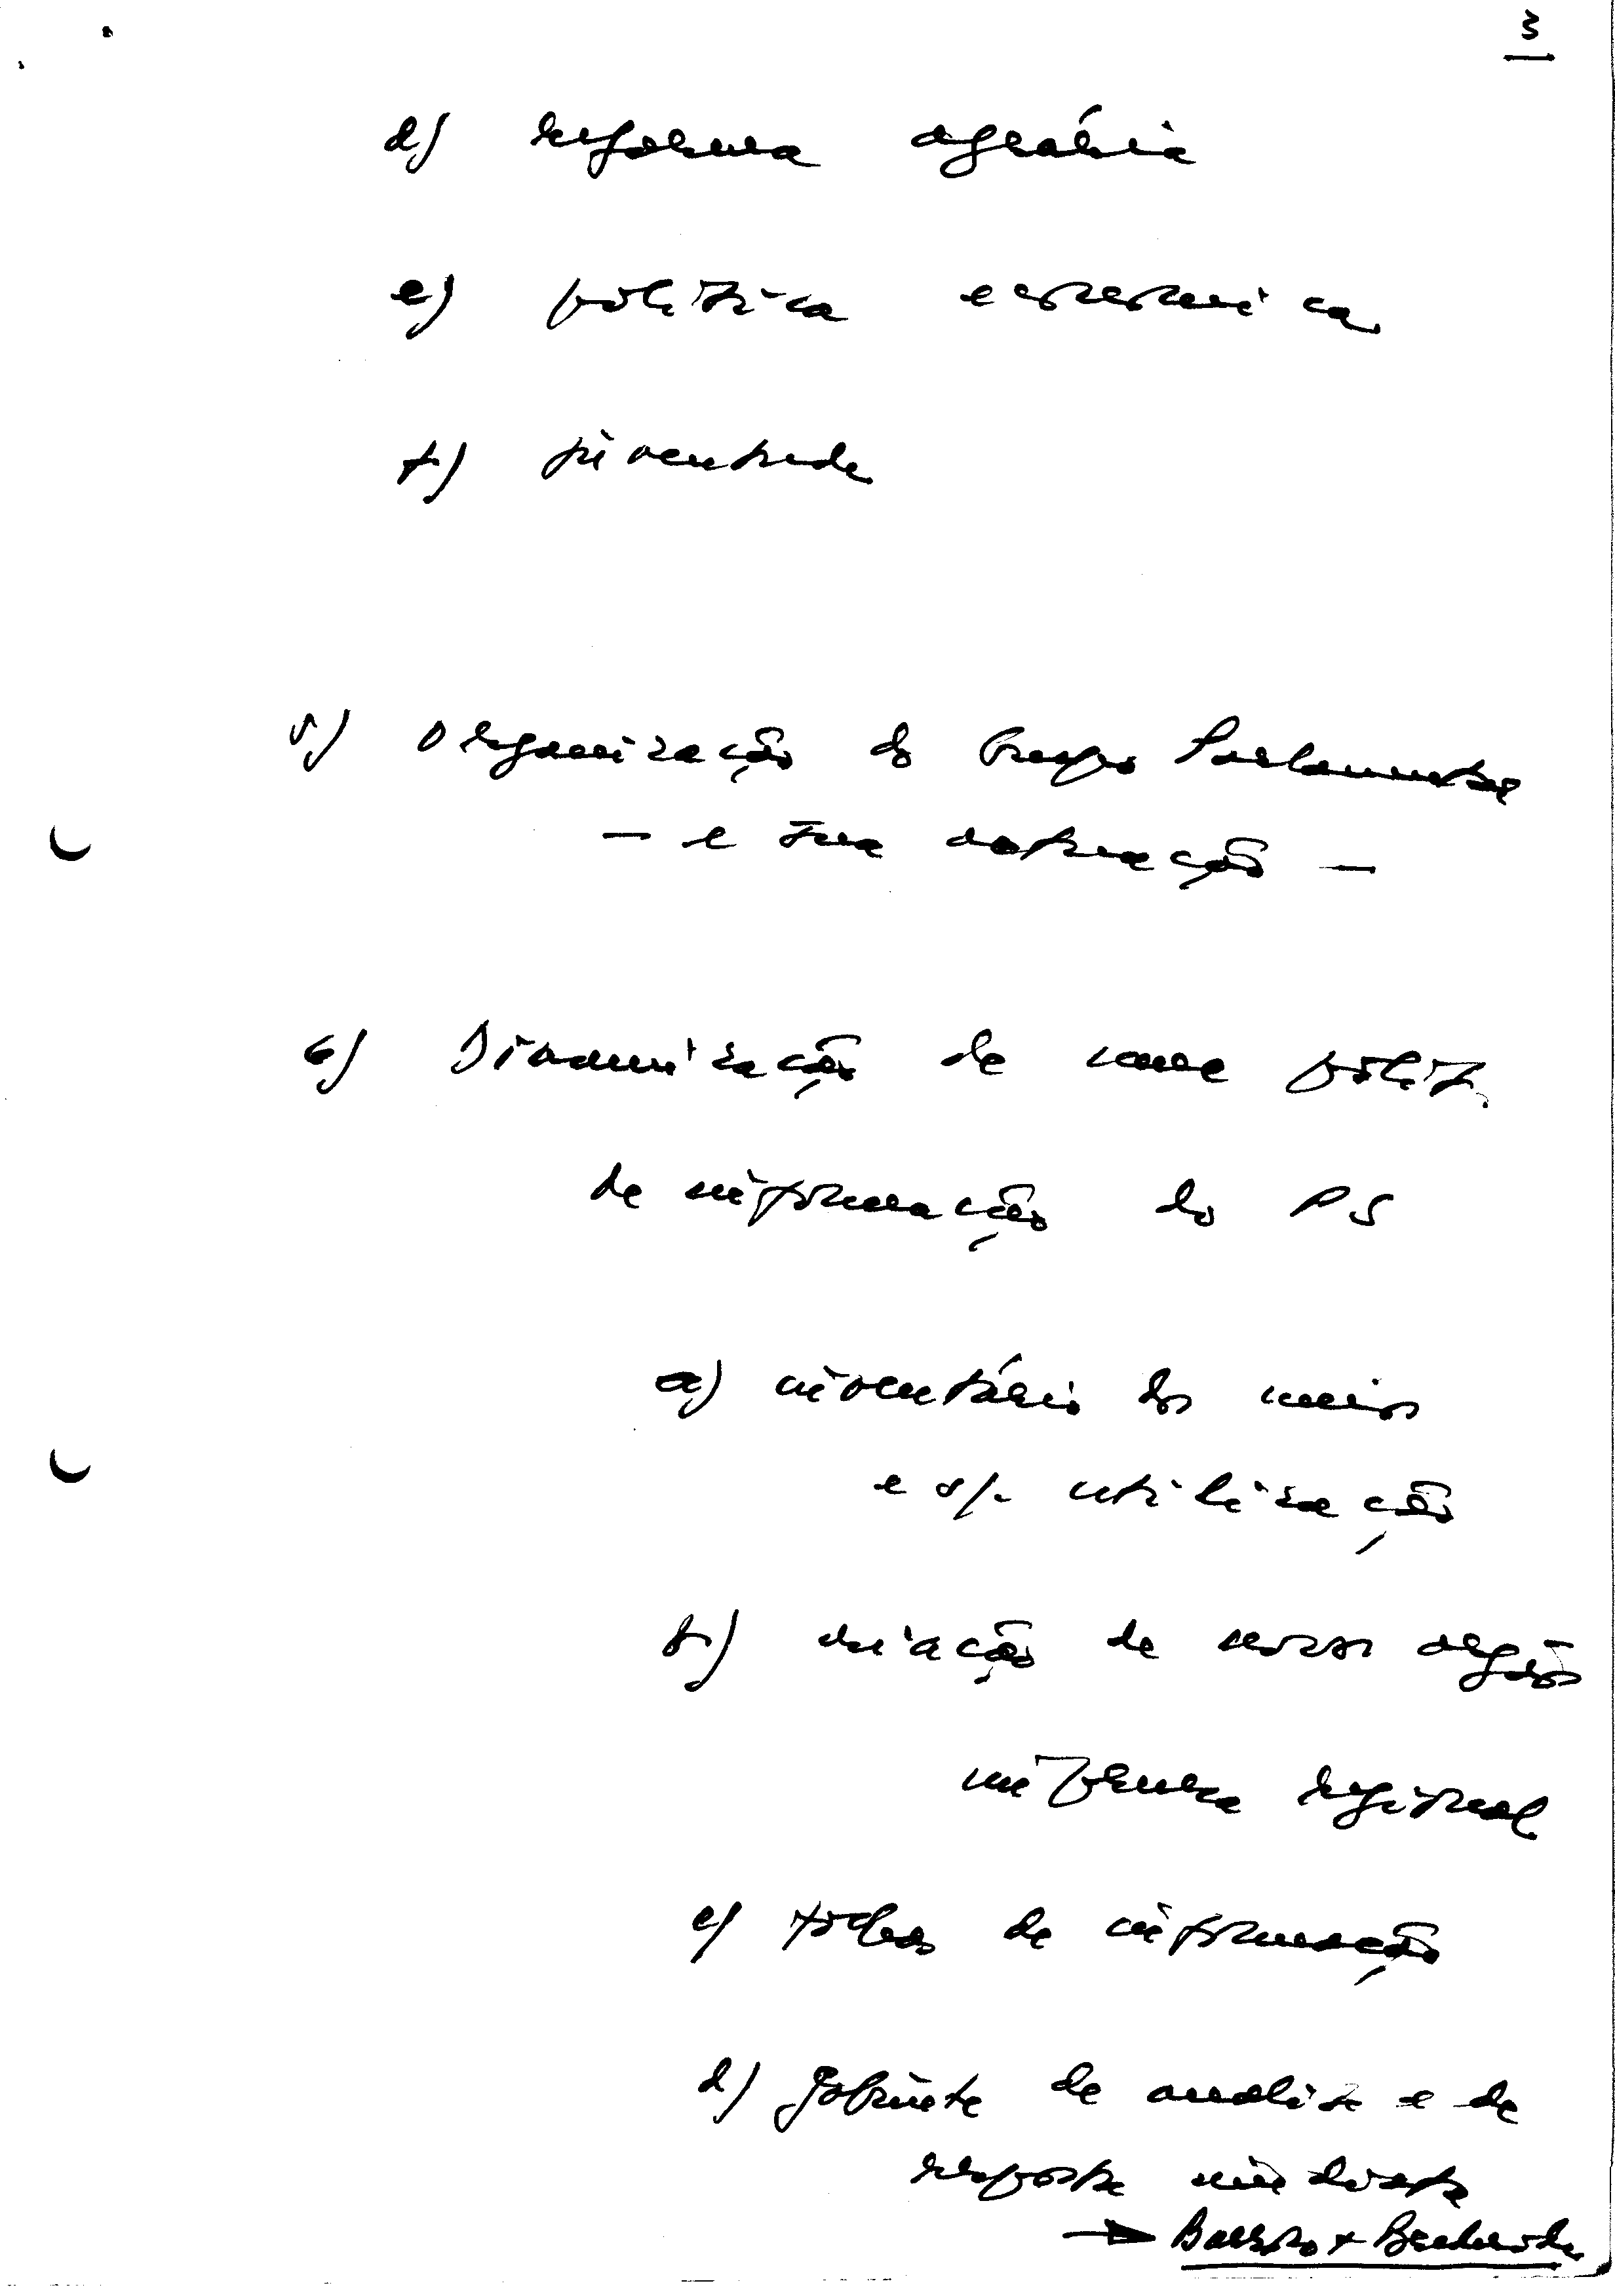 3
d) reforma agrária
e) política económica
f) juventude
5) Organização do Grupo Parlamentar
— e sua actuação —
6) Dinamização de uma polít.
de informação do PS
a) inventário dos meios
e s/. utilização
b) criação de novos orgãos
imprensa regional
c) de informação
d) gabinete de análise e de
resposta imediata
→ Barroso +